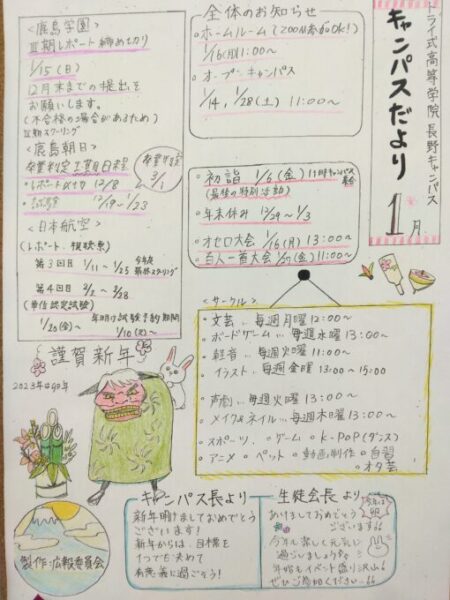 トライ式高等学院 長野キャンパス
キャンパスだより
1月
全体のお知らせ
・ホームルーム(ZOOM参加OK!)
1/16(月)11:00〜
・オープンキャンパス
1/14,1/28(土) 11:00〜
<鹿島学園>
Ⅲ期レポート締め切り
1/15(日)
12月末までの提出を
お願いします。
(不合格の場合があるため)
Ⅲ期スクーリング
<鹿島朝日>
卒業判定
・レポート〆切 12/8
・試験 12/19〜23
卒業式 3/1
<日本航空>
(レポート、視聴票)
第3回目 1/11〜1/25
第4回目 2/2〜2/28
(単位認定試験)
1/20(金)〜
年明け試験予約期間
1/10(火)〜
・初詣 1/6(金)11時キャンパス集合
(最後の特別活動)
・年末休み 12/29〜1/3
・オセロ大会 1/16(月) 13:00〜
・百人一首大会 1/27(金) 11:00〜
<サークル>
・文芸…毎週月曜12:00〜
・ボードゲーム…毎週水曜13:00〜
・軽音…毎週火曜11:00〜
・イラスト…毎週金曜13:00〜15:00
・声劇…毎週火曜13:00〜
・メイク&ネイル…毎週木曜13:00〜
・スポーツ ・ゲーム ・K-POP(ダンス)
・アニメ ・ペット ・動画制作 ・自習
・オタ芸
謹賀新年
2023年卯年
製作:広報委員会
キャンパス長より
新年明けましておめでとう
ございます!
新年からは、目標を
1つでも決めて
有意義に過ごそう!
生徒会長より
あけましておめでとう
ございます
今年も楽しく元気に
過ごしましょうね
年始もイベント盛り沢山!
ぜひご参加ください